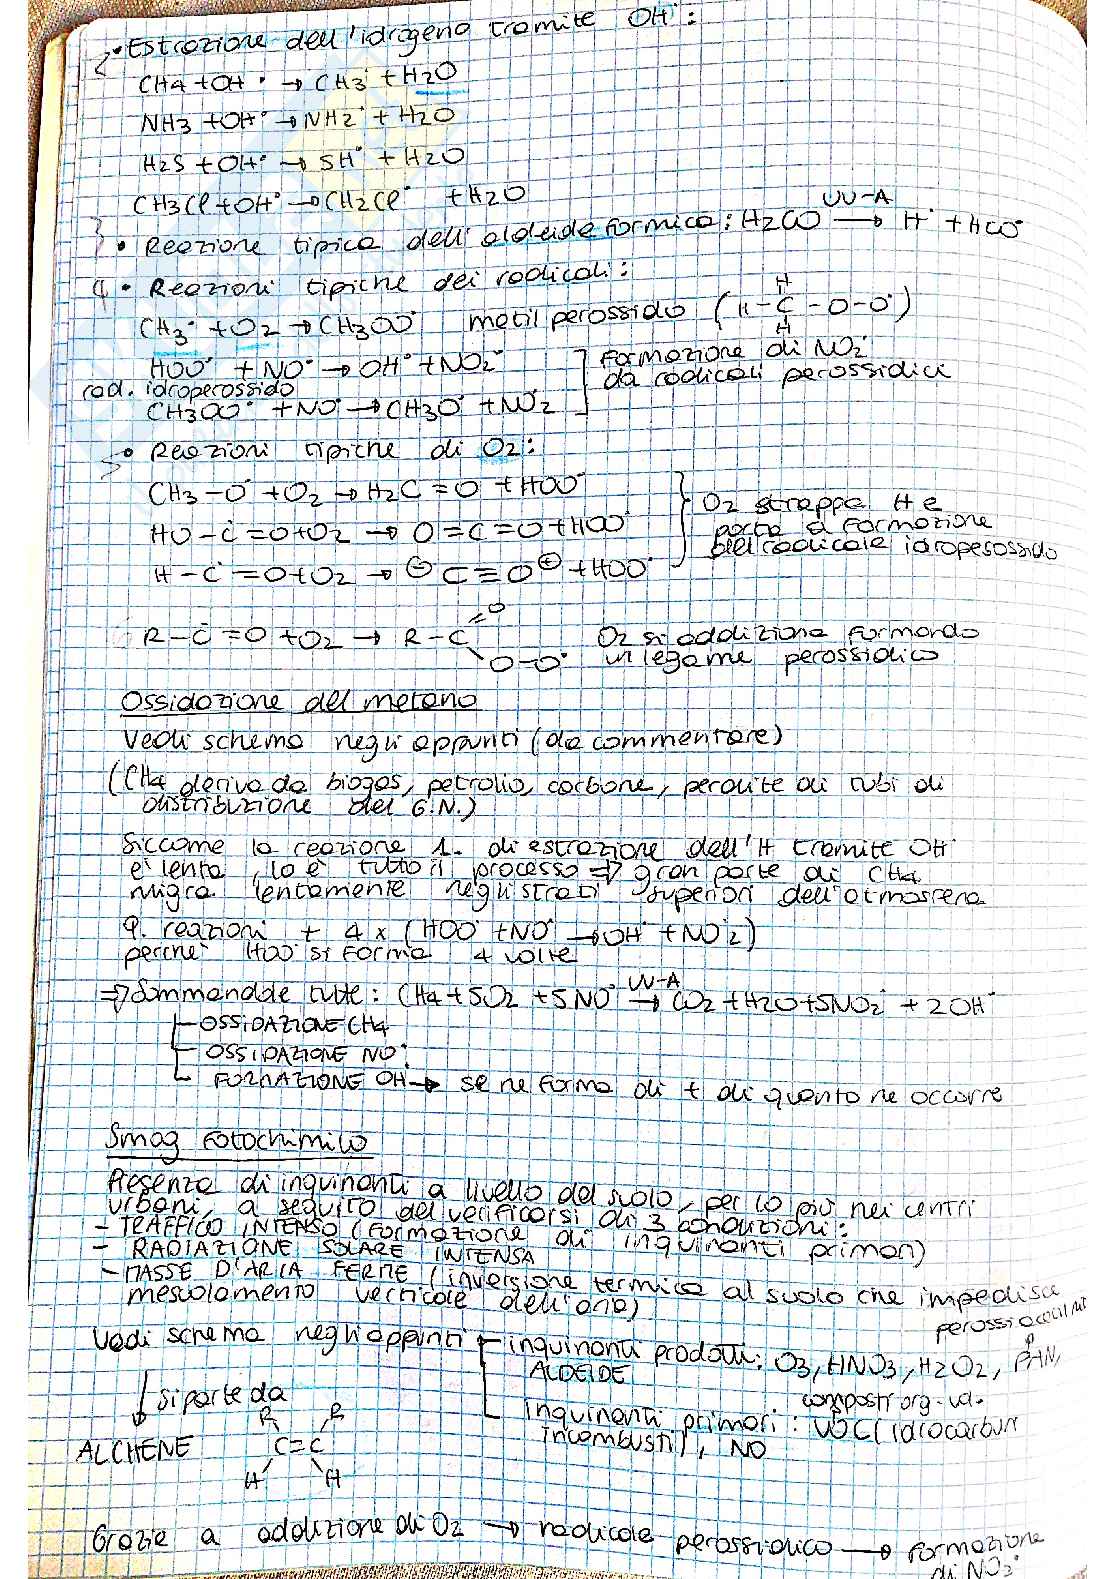 2 • Estrazione dell'idrogeno tramite OH•:
CH4 + OH• → CH3• + H2O
NH3 + OH• → NH2• + H2O
H2S + OH• → SH• + H2O
CH3Cl + OH• → CH2Cl• + H2O
3 • Reazione tipica dell'aldeide formica: H2CO UV-A → H• + HCO•
4 • Reazioni tipiche dei radicali:
CH3• + O2 → CH3OO• metil perossido (H-C-O-O•)
H
H
HOO• + NO• → OH• + NO2•
rad. idroperossido
CH3OO• + NO• → CH3O• + NO2•
formazione di NO2•
da radicali perossidici
5 • Reazioni tipiche di O2:
CH3-O• + O2 → H2C=O + HOO•
HO-C•=O + O2 → O=C=O + HOO•
H-C•=O + O2 → ⊖C≡O⊕ + HOO•
O2 strappa H e
porta a formazione
del radicale idroperossido
R-C•=O + O2 → R-C
=O
O-O•
O2 si addiziona formando
un legame perossidico
Ossidazione del metano
Vedi schema negli appunti (da commentare)
(CH4 deriva da biogas, petrolio, carbone, perdite di tubi di
distribuzione del G.N.)
Siccome la reazione 1. di estrazione dell'H tramite OH•
e' lenta, lo è tutto il processo ⇒ gran parte di CH4
migra lentamente negli strati superiori dell'atmosfera
9. reazioni + 4 x (HOO• + NO• → OH• + NO2•)
perche' HOO• si forma 4 volte
⇒ Sommandole tutte: CH4 + 5O2 + 5NO• UV-A → CO2 + H2O + 5NO2• + 2OH•
OSSIDAZIONE CH4
OSSIDAZIONE NO•
FORMAZIONE OH• → se ne forma di + di quanto ne occorre
Smog fotochimico
Presenza di inquinanti a livello del suolo, per lo più nei centri
urbani, a seguito del verificarsi di 3 condizioni:
- TRAFFICO INTENSO (formazione di inquinanti primari)
- RADIAZIONE SOLARE INTENSA
- MASSE D'ARIA FERME (inversione termica al suolo che impedisce
mescolamento verticale dell'aria)
Vedi schema negli appunti
inquinanti prodotti: O3, HNO3, H2O2, PAN,
ALDEIDE
inquinanti primari: VOC (idrocarburi
composti org. vol.
incombusti), NO
si parte da
ALCHENE
R R
C=C
H H
Grazie a addizione di O2 → radicale perossidico → formazione
di NO2•